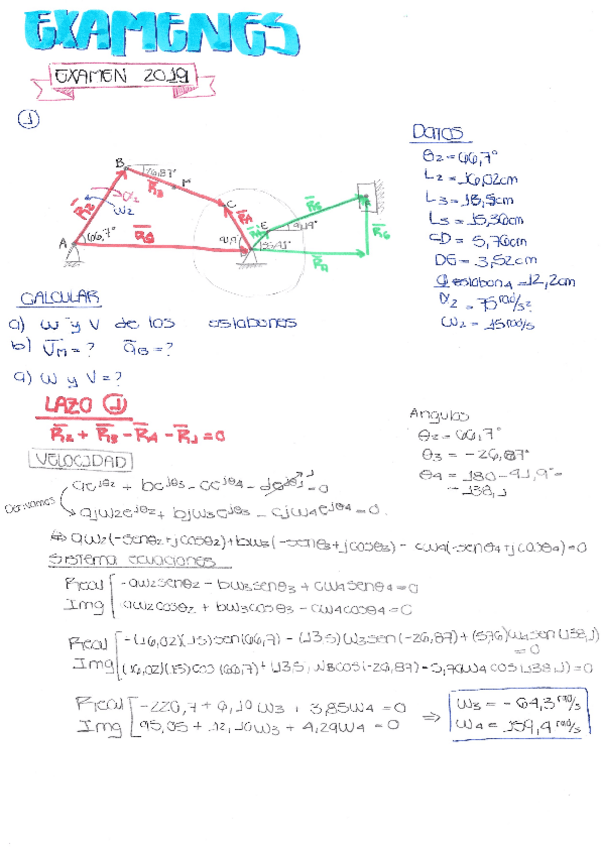 EXAMENES
EXAMEN 2019
①
DATOS
θ2 = 66,7°
L2 = 16,02cm
L5 = 15,30cm
CD = 5,76cm
DE = 3,52cm
α2 = 75 rad/s²
ω2 = 15 rad/s
B
26,87°
R3
M
α2
ω2
R2
C
R5
R4
E
A
66,7°
R1
41,9°
R6
CALCULAR
a) ω y V de los eslabones
b) VM = ? aB = ?
a) ω y V = ?
LAZO ①
R2 + R3 - R4 - R1 = 0
Angulos
θ2 = 66,7°
θ3 = -26,87°
θ4 = 180 - 41,9° =
= 138,1
VELOCIDAD
ae^jθ2 + be^jθ3 - ce^jθ4 - de^jθ1 = 0
Derivamos
ajω2e^jθ2 + bjω3e^jθ3 - cjω4e^jθ4 = 0
⇒ aω2(-senθ2+jcosθ2)+bω3(-senθ3+jcosθ3) - cω4(-senθ4+jcosθ4)=0
Sistema ecuaciones
Real [ -aω2senθ2 - bω3senθ3 + cω4senθ4 = 0
Img [ aω2cosθ2 + bω3cosθ3 - cω4cosθ4 = 0
Real [ -(16,02)(15)sen(66,7) - (13,5)ω3sen(-26,87) + (5,76)ω4sen(138,1) = 0
Img [ (16,02)(15)cos(66,7) + 13,5 ω3cos(-26,87) - 5,76ω4cos(138,1) = 0
Real [ -220,7 + 6,10ω3 + 3,85ω4 = 0
Img [ 95,05 + 12,10ω3 + 4,29ω4 = 0
⇒ ω3 = -64,3 rad/s
ω4 = 159,4 rad/s